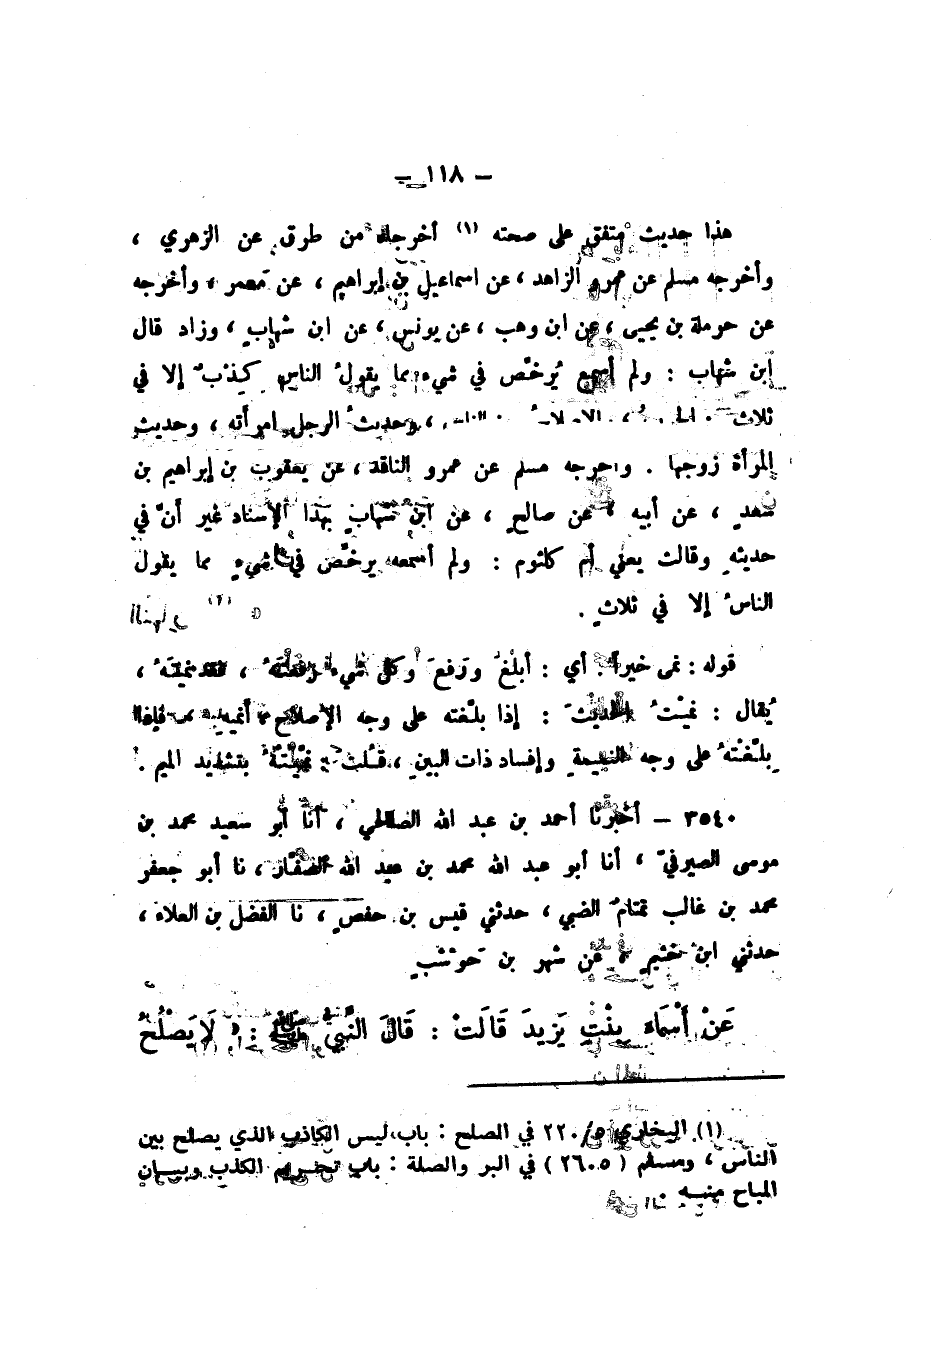 - ١١٨ -
هذا حديث متفق على صحته (١) أخرجاه من طرق عن الزهري ،
وأخرجه مسلم عن عمرو الزاهد ، عن اسماعيل بن إبراهيم ، عن معمر ، وأخرجه
عن حرملة بن يحيى ، عن ابن وهب ، عن يونس ، عن ابن شهابٍ ، وزاد قال
ابن شهاب : ولم أسمع يُرخَّص في شيء مما يقولُ الناس كذبٌ إلا في
ثلاث ، وحديثُ الرجل امرأته ، وحديث
المرأة زوجها . وأخرجه مسلم عن عمرو الناقد ، عن يعقوب بن إبراهيم بن
سعدٍ ، عن أبيه ، عن صالحٍ ، عن ابن شهابٍ بهذا الإسناد غير أنّ في
حديثه وقالت يعني أم كلثوم : ولم أسمعه يرخَّص في شيءٍ مما يقول
الناسُ إلا في ثلاثٍ .
قوله : نمى خيراً أي : أبلغَ ورَفعَ وكل شيء رفعتَهُ ، فقد نميتَهُ ،
يُقال : نميْتُ الحديثَ : إذا بلَّغته على وجه الإصلاح أنميه ، فإذا
بلَّغْتَهُ على وجه النميمة وإفساد ذات البين ، قلت : نمَّيْتَهُ بتشديد الميم .
٣٥٤٠ - أخبرنا أحمد بن عبد الله الصالحي ، أنا أبو سعيد محمد بن
موسى الصيرفيّ ، أنا أبو عبد الله محمد بن عبد الله الصفّار ، نا أبو جعفر
محمد بن غالب تمتامٌ الضبي ، حدثني قيس بن حفصٍ ، نا الفضل بن العلاء ،
حدثني ابنُ خثيمٍ ، عن شهر بن حَوْشبٍ
عَنْ أَسْمَاءَ بِنْتِ يَزِيدَ قَالَتْ : قَالَ النَّبِيُّ ﷺ : لَا يَصْلُحُ
(١) البخاري ٥/٢٢٠ في الصلح : باب ليس الكاذب الذي يصلح بين
الناس ، ومسلم (٢٦٠٥) في البر والصلة : باب تحريم الكذب وبيان
المباح منه .